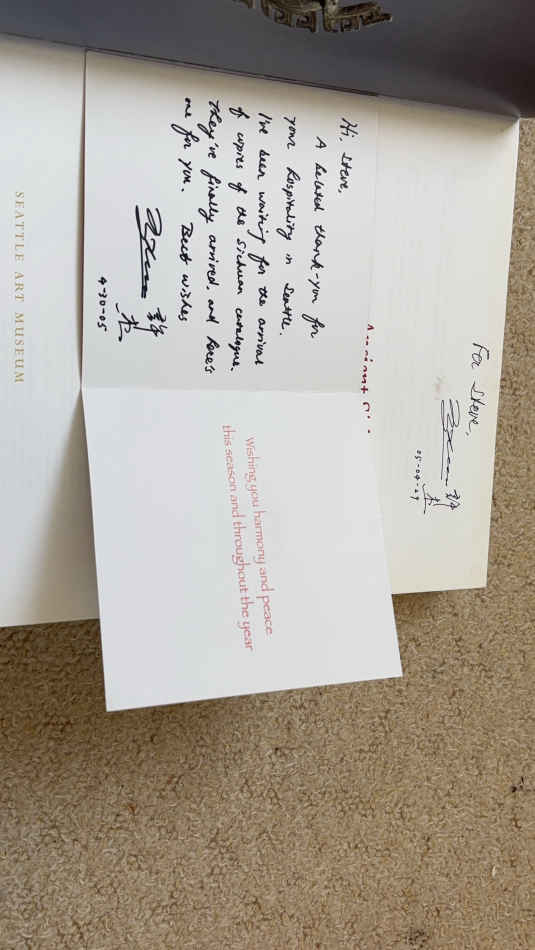 SEATTLE ART MUSEUM
Hi, Steve,
A belated thank-you for
your hospitality in Seattle.
I've been waiting for the arrival
of copies of the Sichuan catalogue.
They've finally arrived, and here's
one for you. Best wishes
4-30-05
Wishing you harmony and peace
this season and throughout the year
Ancient
For Steve,
05-04-29